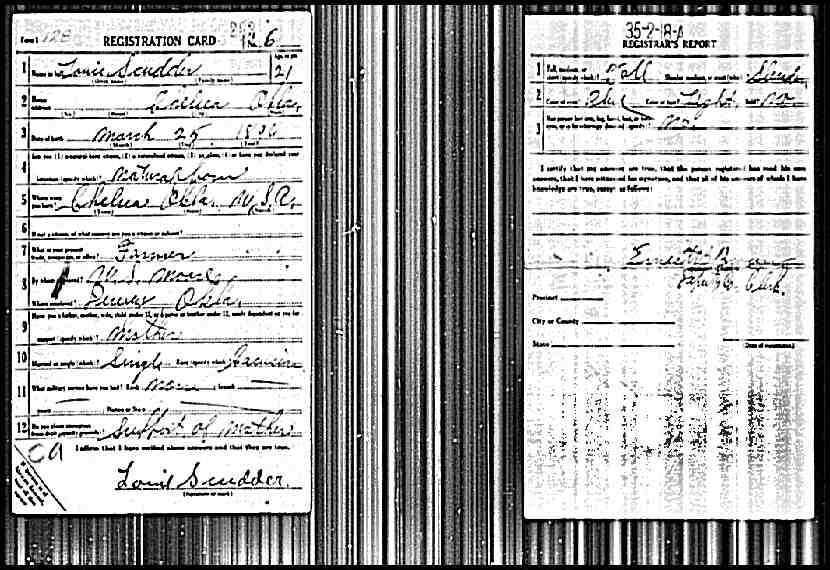 Form 1
REGISTRATION CARD 26
Age, in yrs
1 Name in full Louie Scudder 21
(Given name) (Family name)
2 Home address Chelsea Okla.
(No.) (Street) (City)
3 Date of birth March 25
(Month) (Day) (Year)
4 Are you (1) a natural born citizen, (2) a naturalized citizen, (3) an alien, (4) or have you declared your
intention (specify which)? Natural born
5 Where were you born? Chelsea Okla. U.S.A.
(Town) (State) (Nation)
6 If not a citizen, of what country are you a citizen or subject?
7 What is your present trade, occupation, or office? Farmer
8 By whom employed?
Where employed? Okla.
9 Have you a father, mother, wife, child under 12, or a sister or brother under 12, solely dependent on you for
support (specify which)? Mother
10 Married or single (which)? Single Race (specify which)?
11 What military service have you had? Rank None ; branch
years ; Nation or State
12 Do you claim exemption from draft (specify grounds)? Support of Mother
I affirm that I have verified above answers and that they are true.
Louie Scudder.
(Signature or mark)
35-2-18-A
REGISTRAR'S REPORT
1 Tall, medium, or short (specify which)? Tall Slender, medium, or stout (which)? Slender
2 Color of eyes? Blue Color of hair? Light Bald? No.
3 Has person lost arm, leg, hand, foot, or both
eyes, or is he otherwise disabled (specify)? No.
I certify that my answers are true, that the person registered has read his own
answers, that I have witnessed his signature, and that all of his answers of which I have
knowledge are true, except as follows:
Precinct
City or County
State (Date of registration)